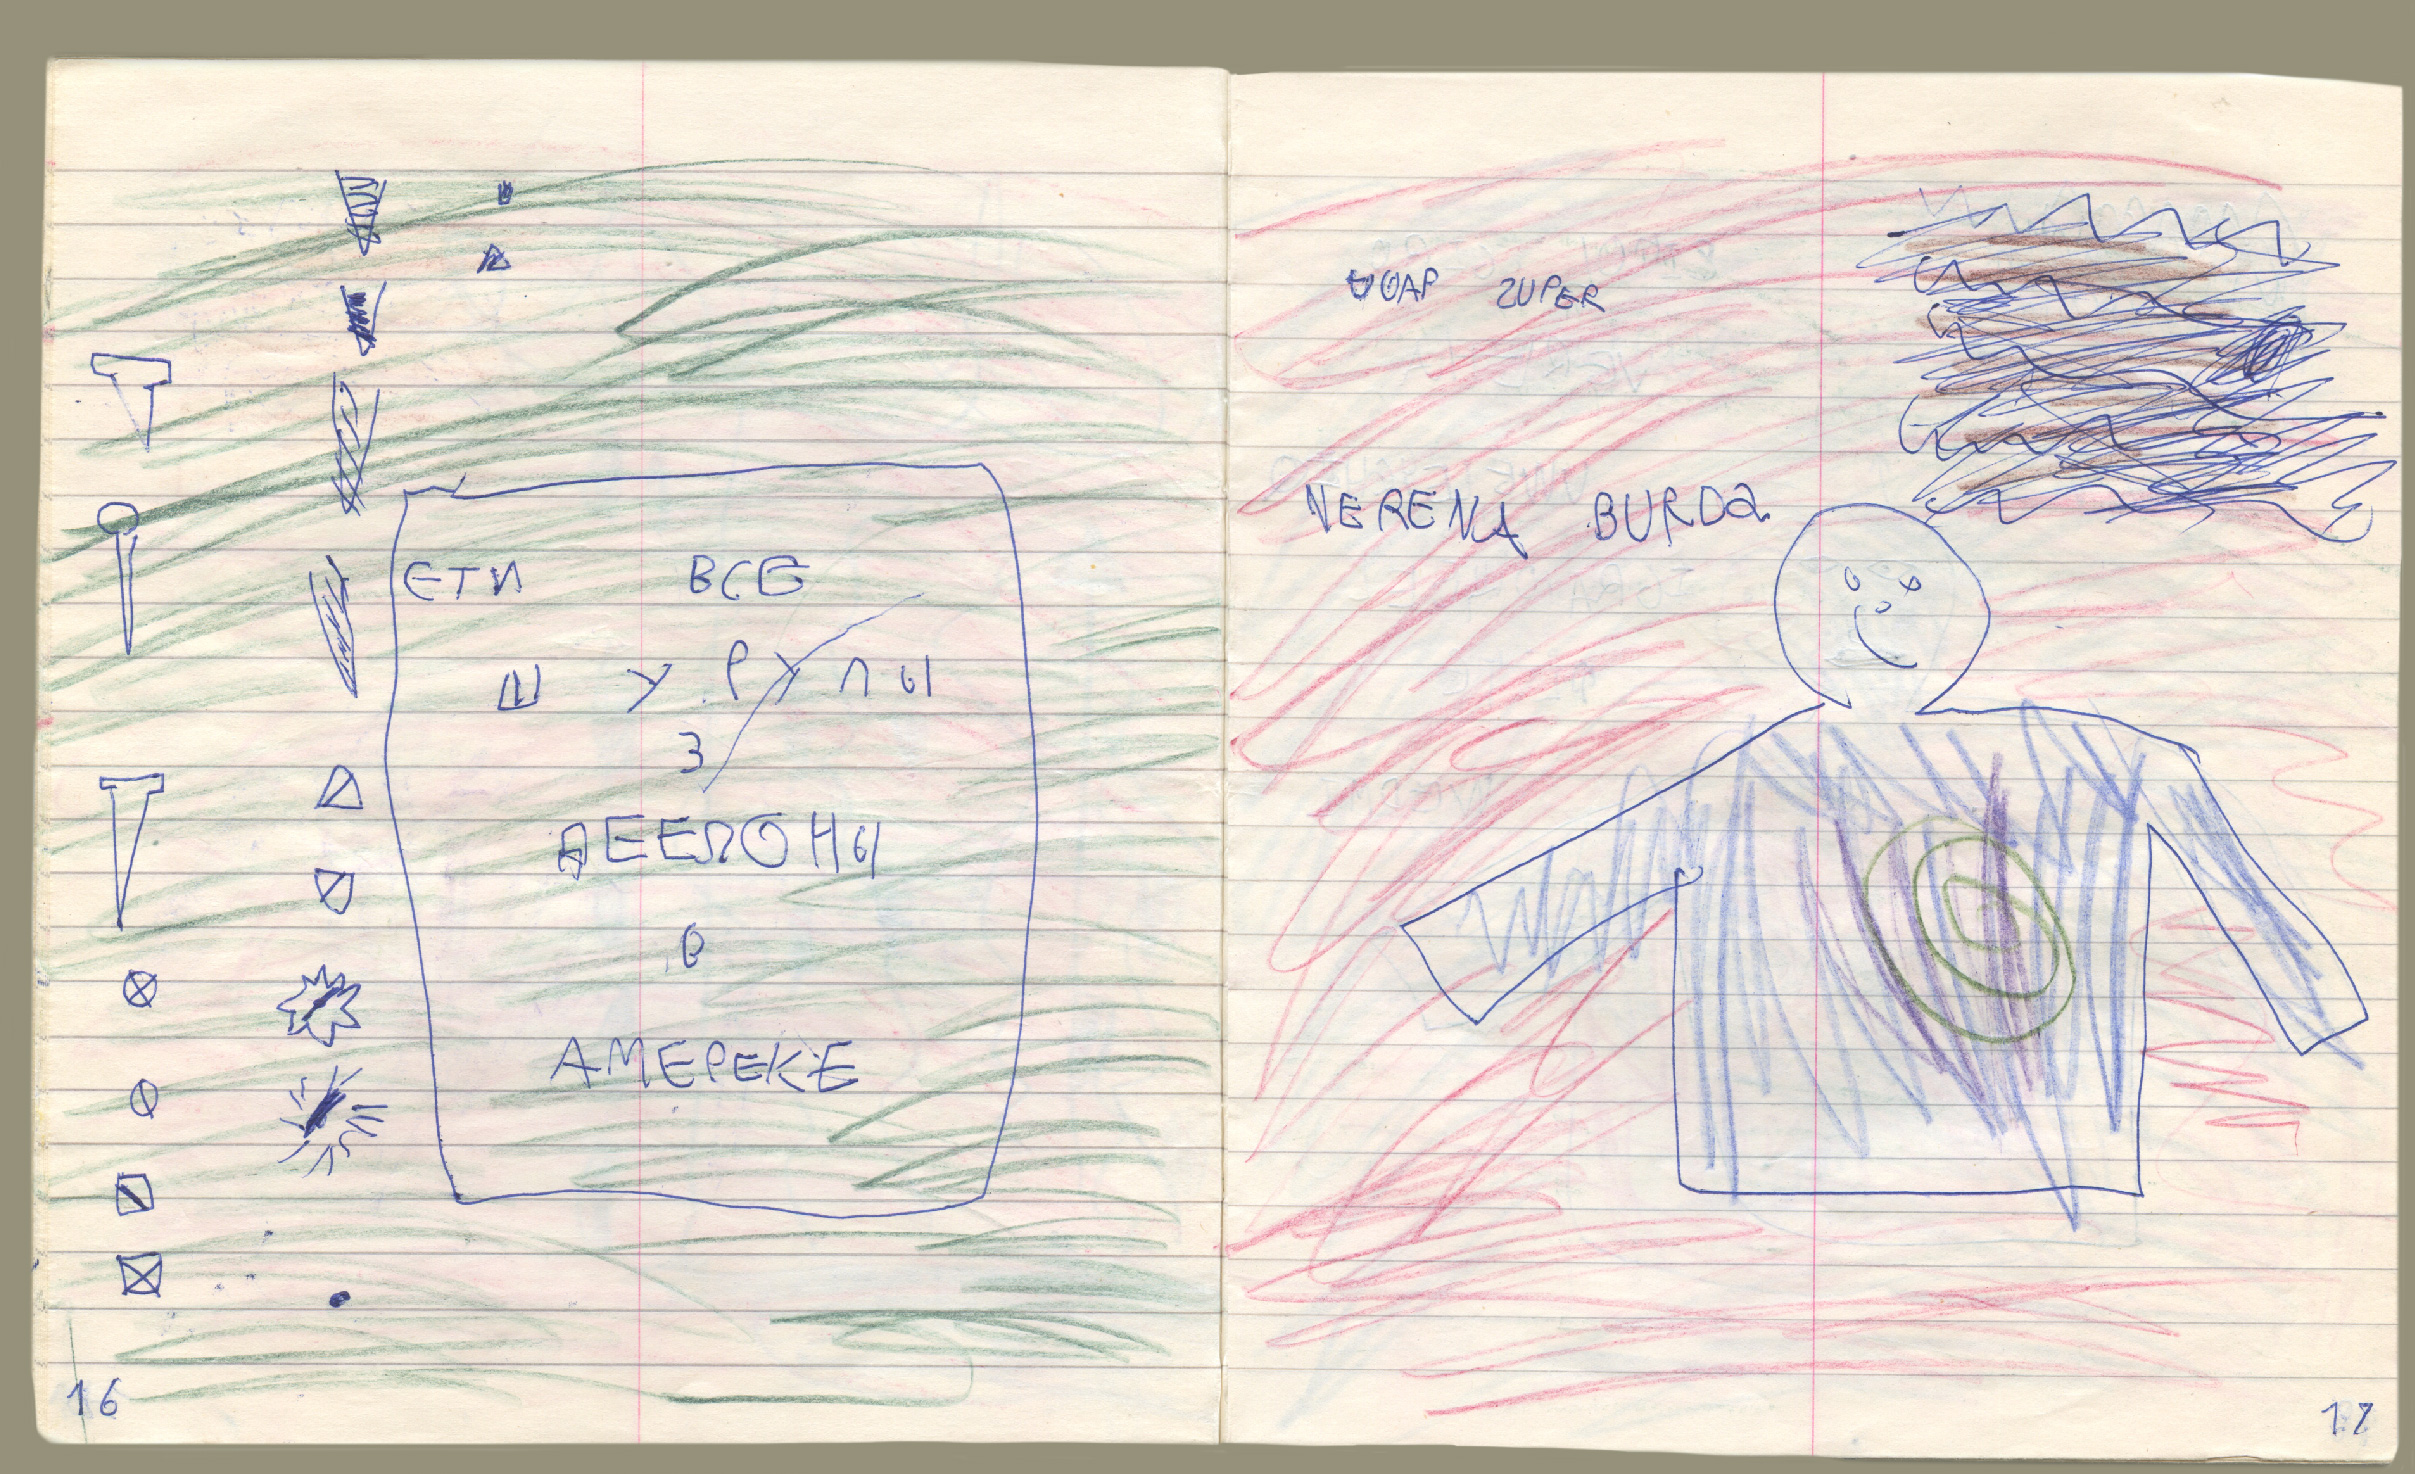 ЕТИ ВСЕ
ШУРУПЫ
З
АЕЕЛОНЫ
В
АМЕРЕКЕ
16
ZUPER
VERENA BURDa
17